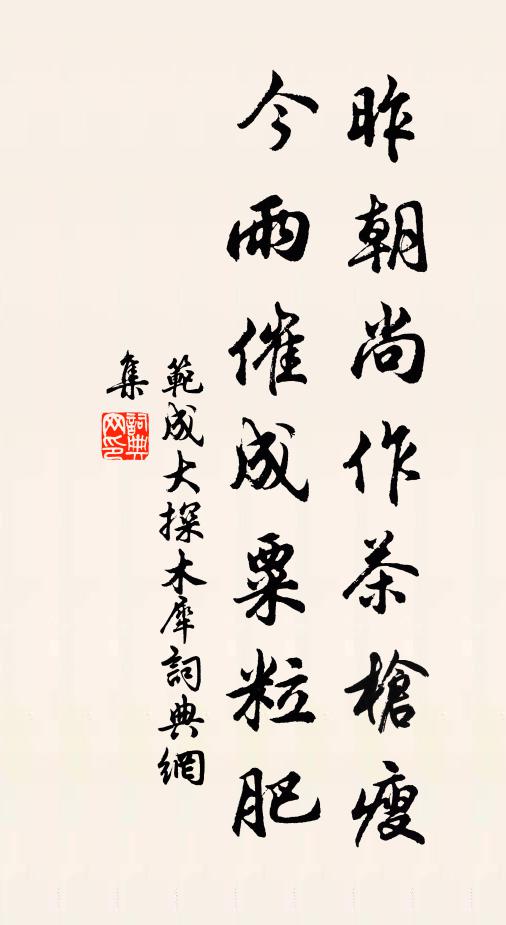 昨朝尚作茶槍瘦
今雨催成粟粒肥
範成大探木犀詞典網
集
詞典網印